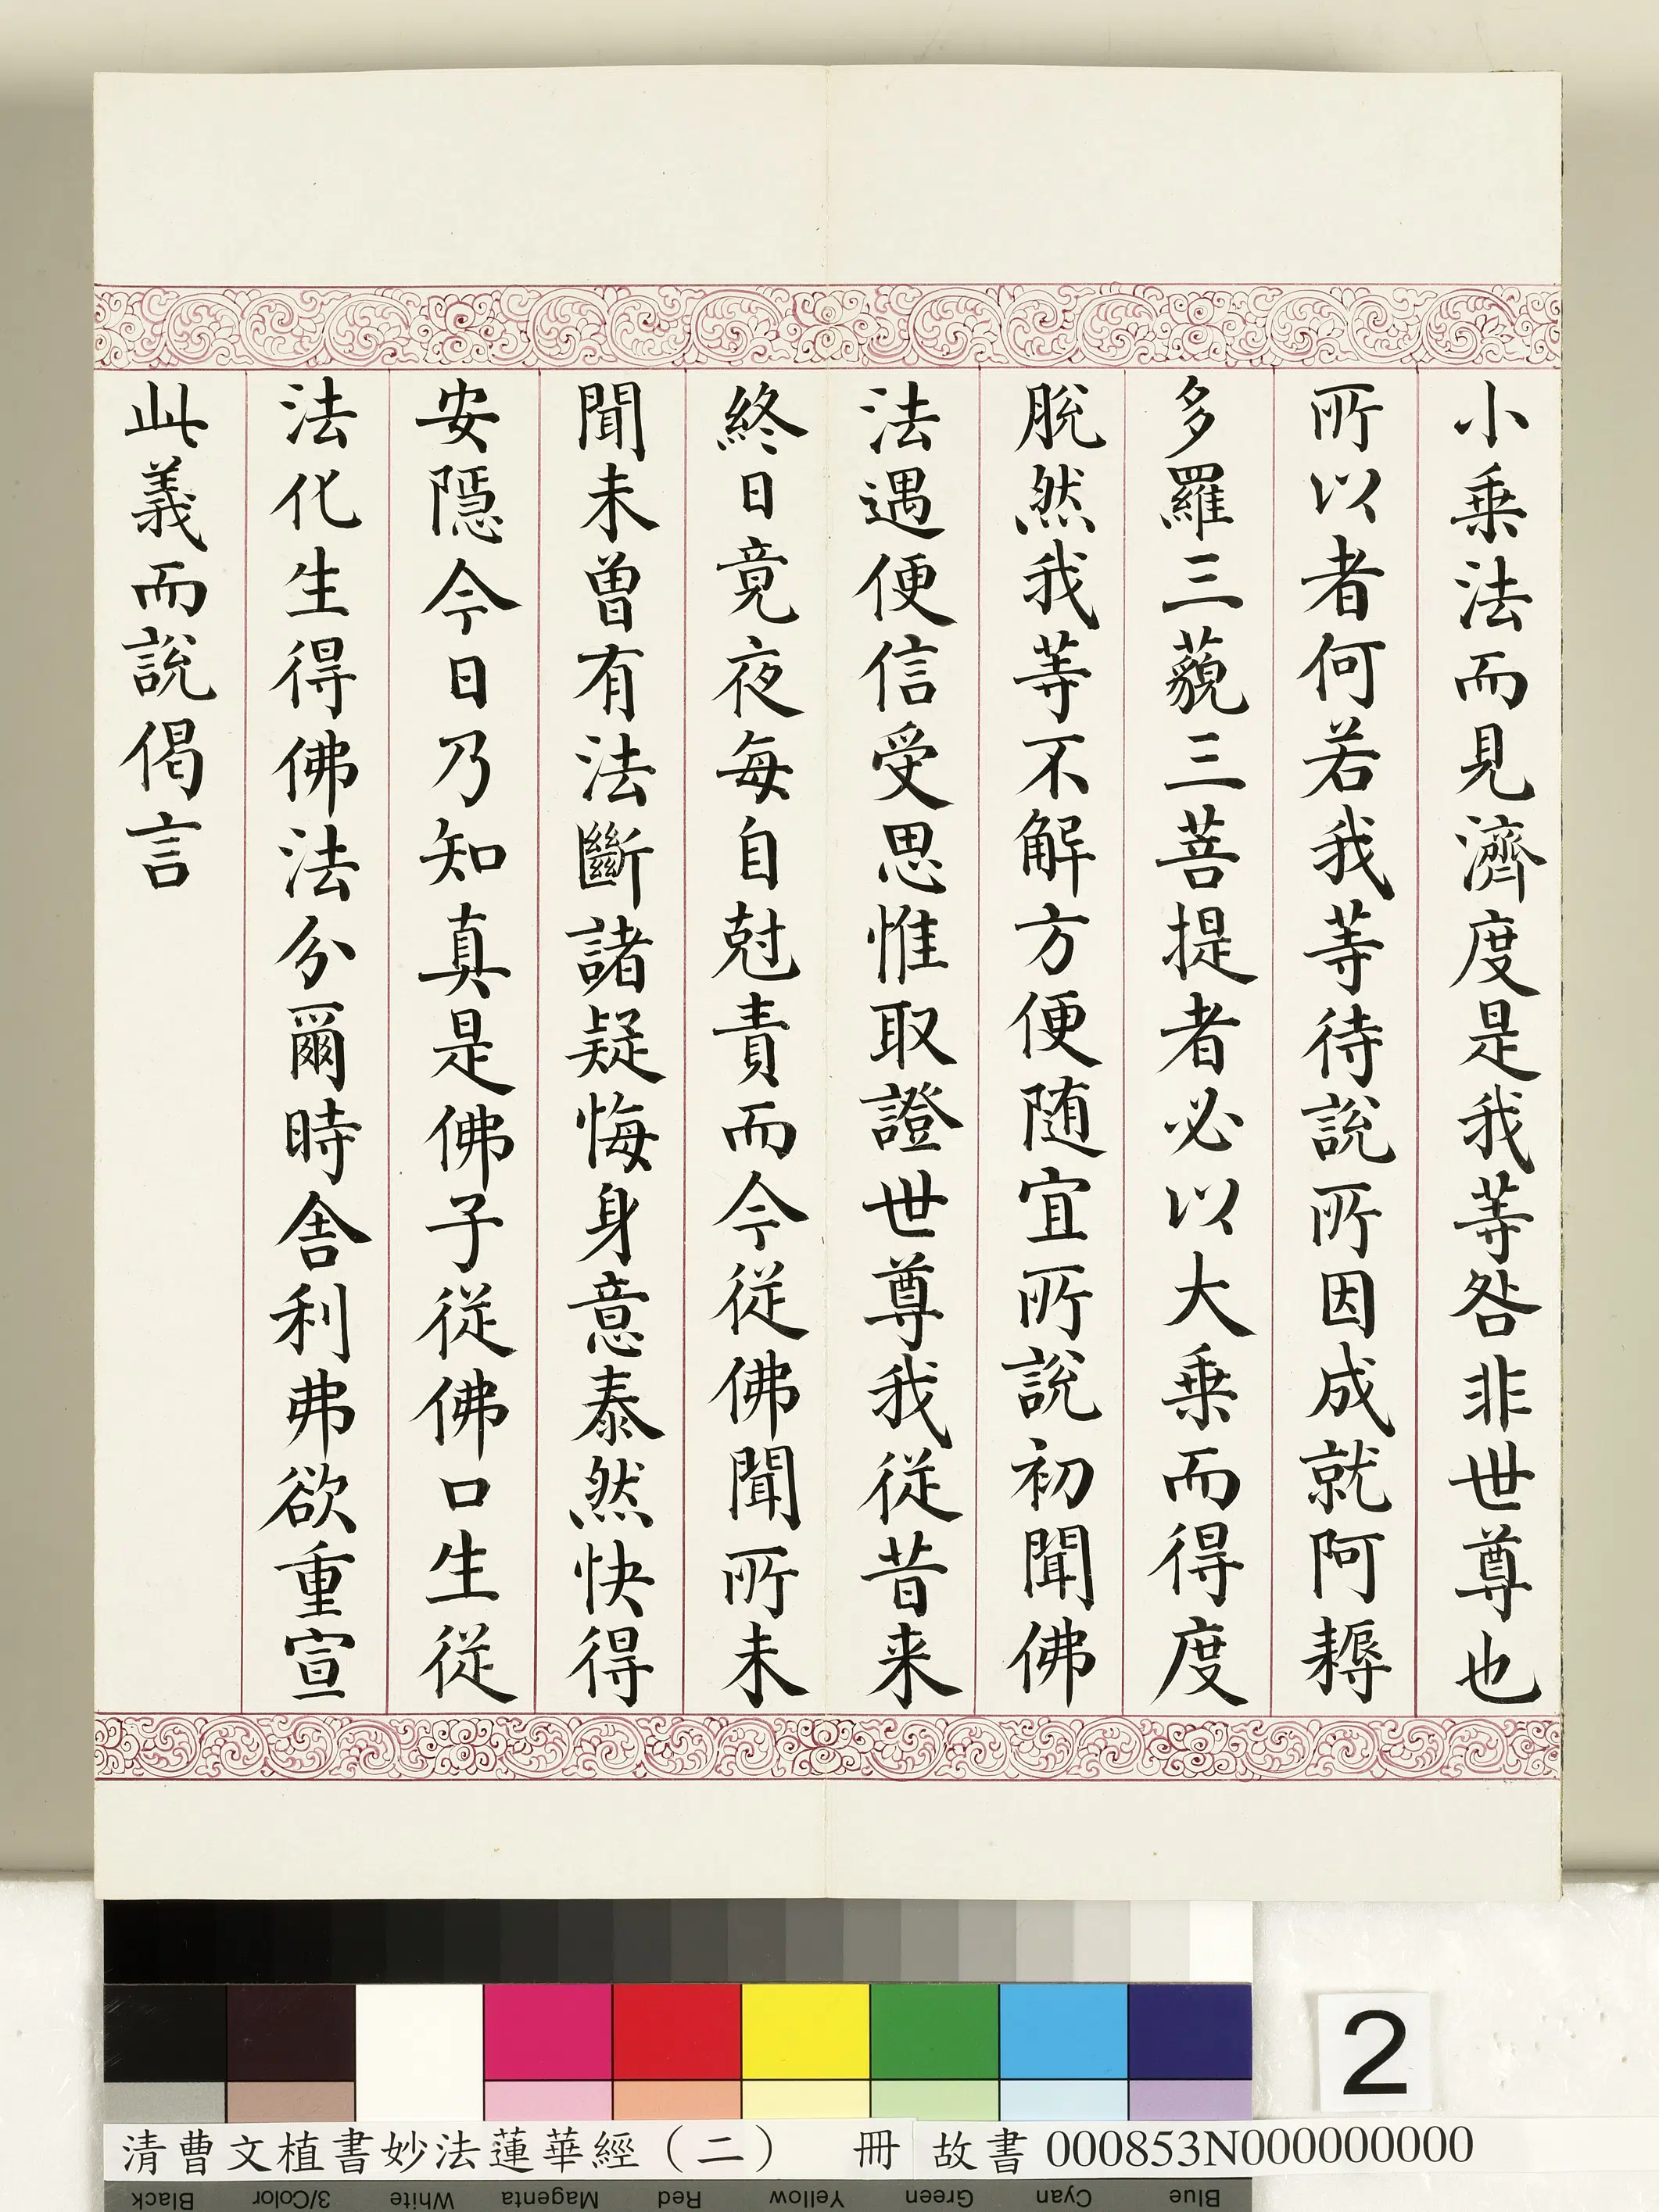 小乗法而見濟度是我等咎非世尊也
所以者何若我等待說所因成就阿耨
多羅三藐三菩提者必以大乗而得度
脫然我等不解方便随宜所說初聞佛
法遇便信受思惟取證世尊我從昔来
終日竟夜每自尅責而今從佛聞所未
聞未曽有法斷諸疑悔身意泰然快得
安隱今日乃知真是佛子從佛口生從
法化生得佛法分爾時舎利弗欲重宣
此義而說偈言
2
清曹文植書妙法蓮華經（二） 冊 故書 000853N000000000
Black 3/Color White Magenta Red Yellow Green Cyan Blue